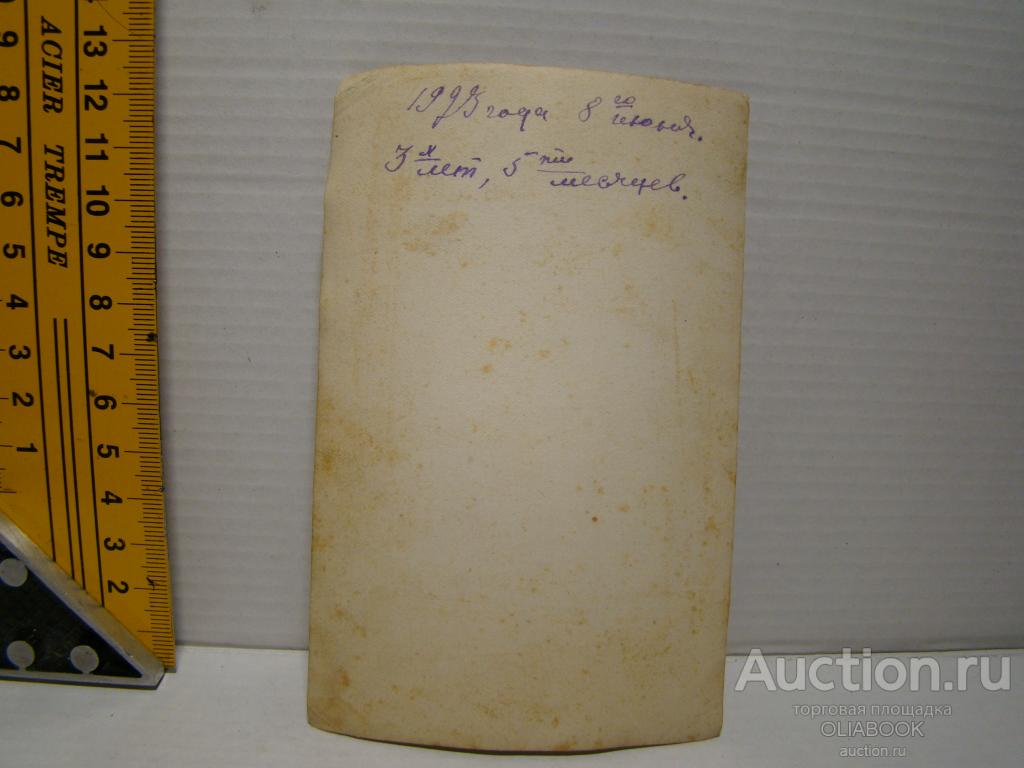 года 8 го июня.
3 х лет, 5 ти месяцев.
ACIER TREMPE
13
12
11
10
9
8
7
6
5
4
3
2
9
8
7
6
5
4
3
2
1
Auction.ru
торговая площадка
OLIABOOK
auction.ru